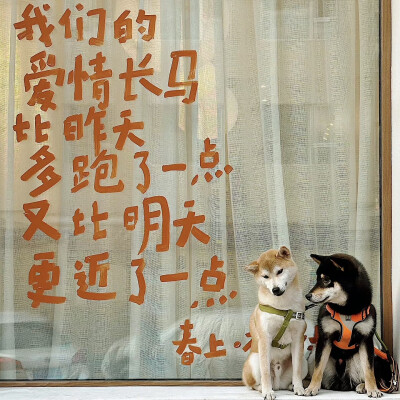 我们的
爱情长马
比昨天
多跑了一点
又比明天
更近了一点
春上·